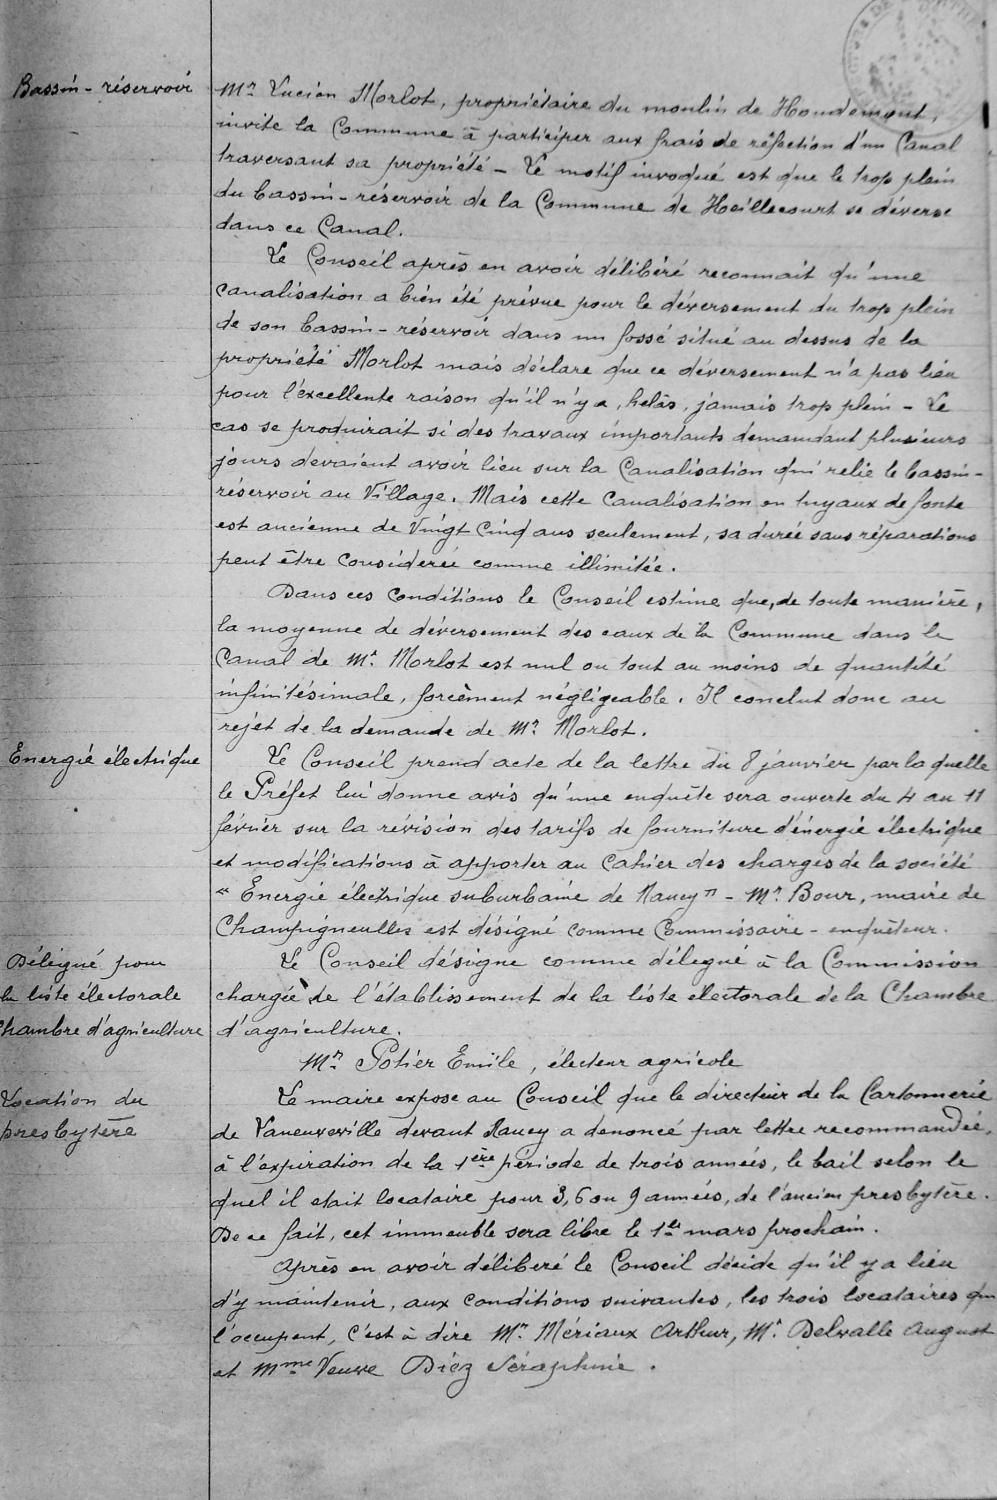 Bassin-réservoir
Mr Lucien Morlot, propriétaire du moulin de Houdemont,
invite la Commune à participer aux frais de réfection d'un Canal
traversant sa propriété - Le motif invoqué est que le trop plein
du bassin-réservoir de la Commune de Heillecourt se déverse
dans ce Canal.
Le Conseil après en avoir délibéré reconnait qu'une
canalisation a bien été prévue pour le déversement du trop plein
de son bassin-réservoir dans un fossé situé au dessus de la
propriété Morlot mais déclare que ce déversement n'a pas lieu
pour l'excellente raison qu'il n'y a, helàs, jamais trop plein - Le
cas se produirait si des travaux importants demandant plusieurs
jours devraient avoir lieu sur la Canalisation qui relie le bassin-
réservoir au Village. Mais cette Canalisation en tuyaux de fonte
est ancienne de Vingt Cinq ans seulement, sa durée sans réparations
peut être considerée comme illimitée.
Dans ces conditions le Conseil estime que, de toute manière,
la moyenne de déversement des eaux de la Commune dans le
Canal de Mr Morlot est nul ou tout au moins de quantité
infinitésimale, forcèment négligeable. Il conclut donc au
rejet de la demande de Mr Morlot.
Energie électrique
Le Conseil prend acte de la lettre du 8 janvier par la quelle
le Préfet lui donne avis qu'une enquête sera ouverte du 4 au 11
février sur la révision des tarifs de fourniture d'énergie électrique
et modifications à apporter au Cahier des charges de la société
"Energie électrique suburbaine de Nancy" - Mr Bour, maire de
Champigneulles est désigné comme Commissaire-enquêteur.
Délégué pour
la liste électorale
Chambre d'agriculture
Le Conseil désigne comme délegué à la Commission
chargée de l'établissement de la liste électorale de la Chambre
d'agriculture.
Mr Potier Emile, électeur agricole
Location du
presbytère
Le maire expose au Conseil que le directeur de la Cartonnerie
de Laneuveville devant Nancy a denoncé par lettre recommandée,
à l'expiration de la 1ère période de trois années, le bail selon le
quel il etait locataire pour 3, 6 ou 9 années, de l'ancien presbytère.
De ce fait, cet immeuble sera libre le 1er mars prochain.
Après en avoir délibéré le Conseil décide qu'il y a lieu
d'y maintenir, aux conditions suivantes, les trois locataires qui
l'occupent, c'est à dire Mr Mériaux Arthur, Mr Delvalle August
et Mme Veuve Diez Séraphine.